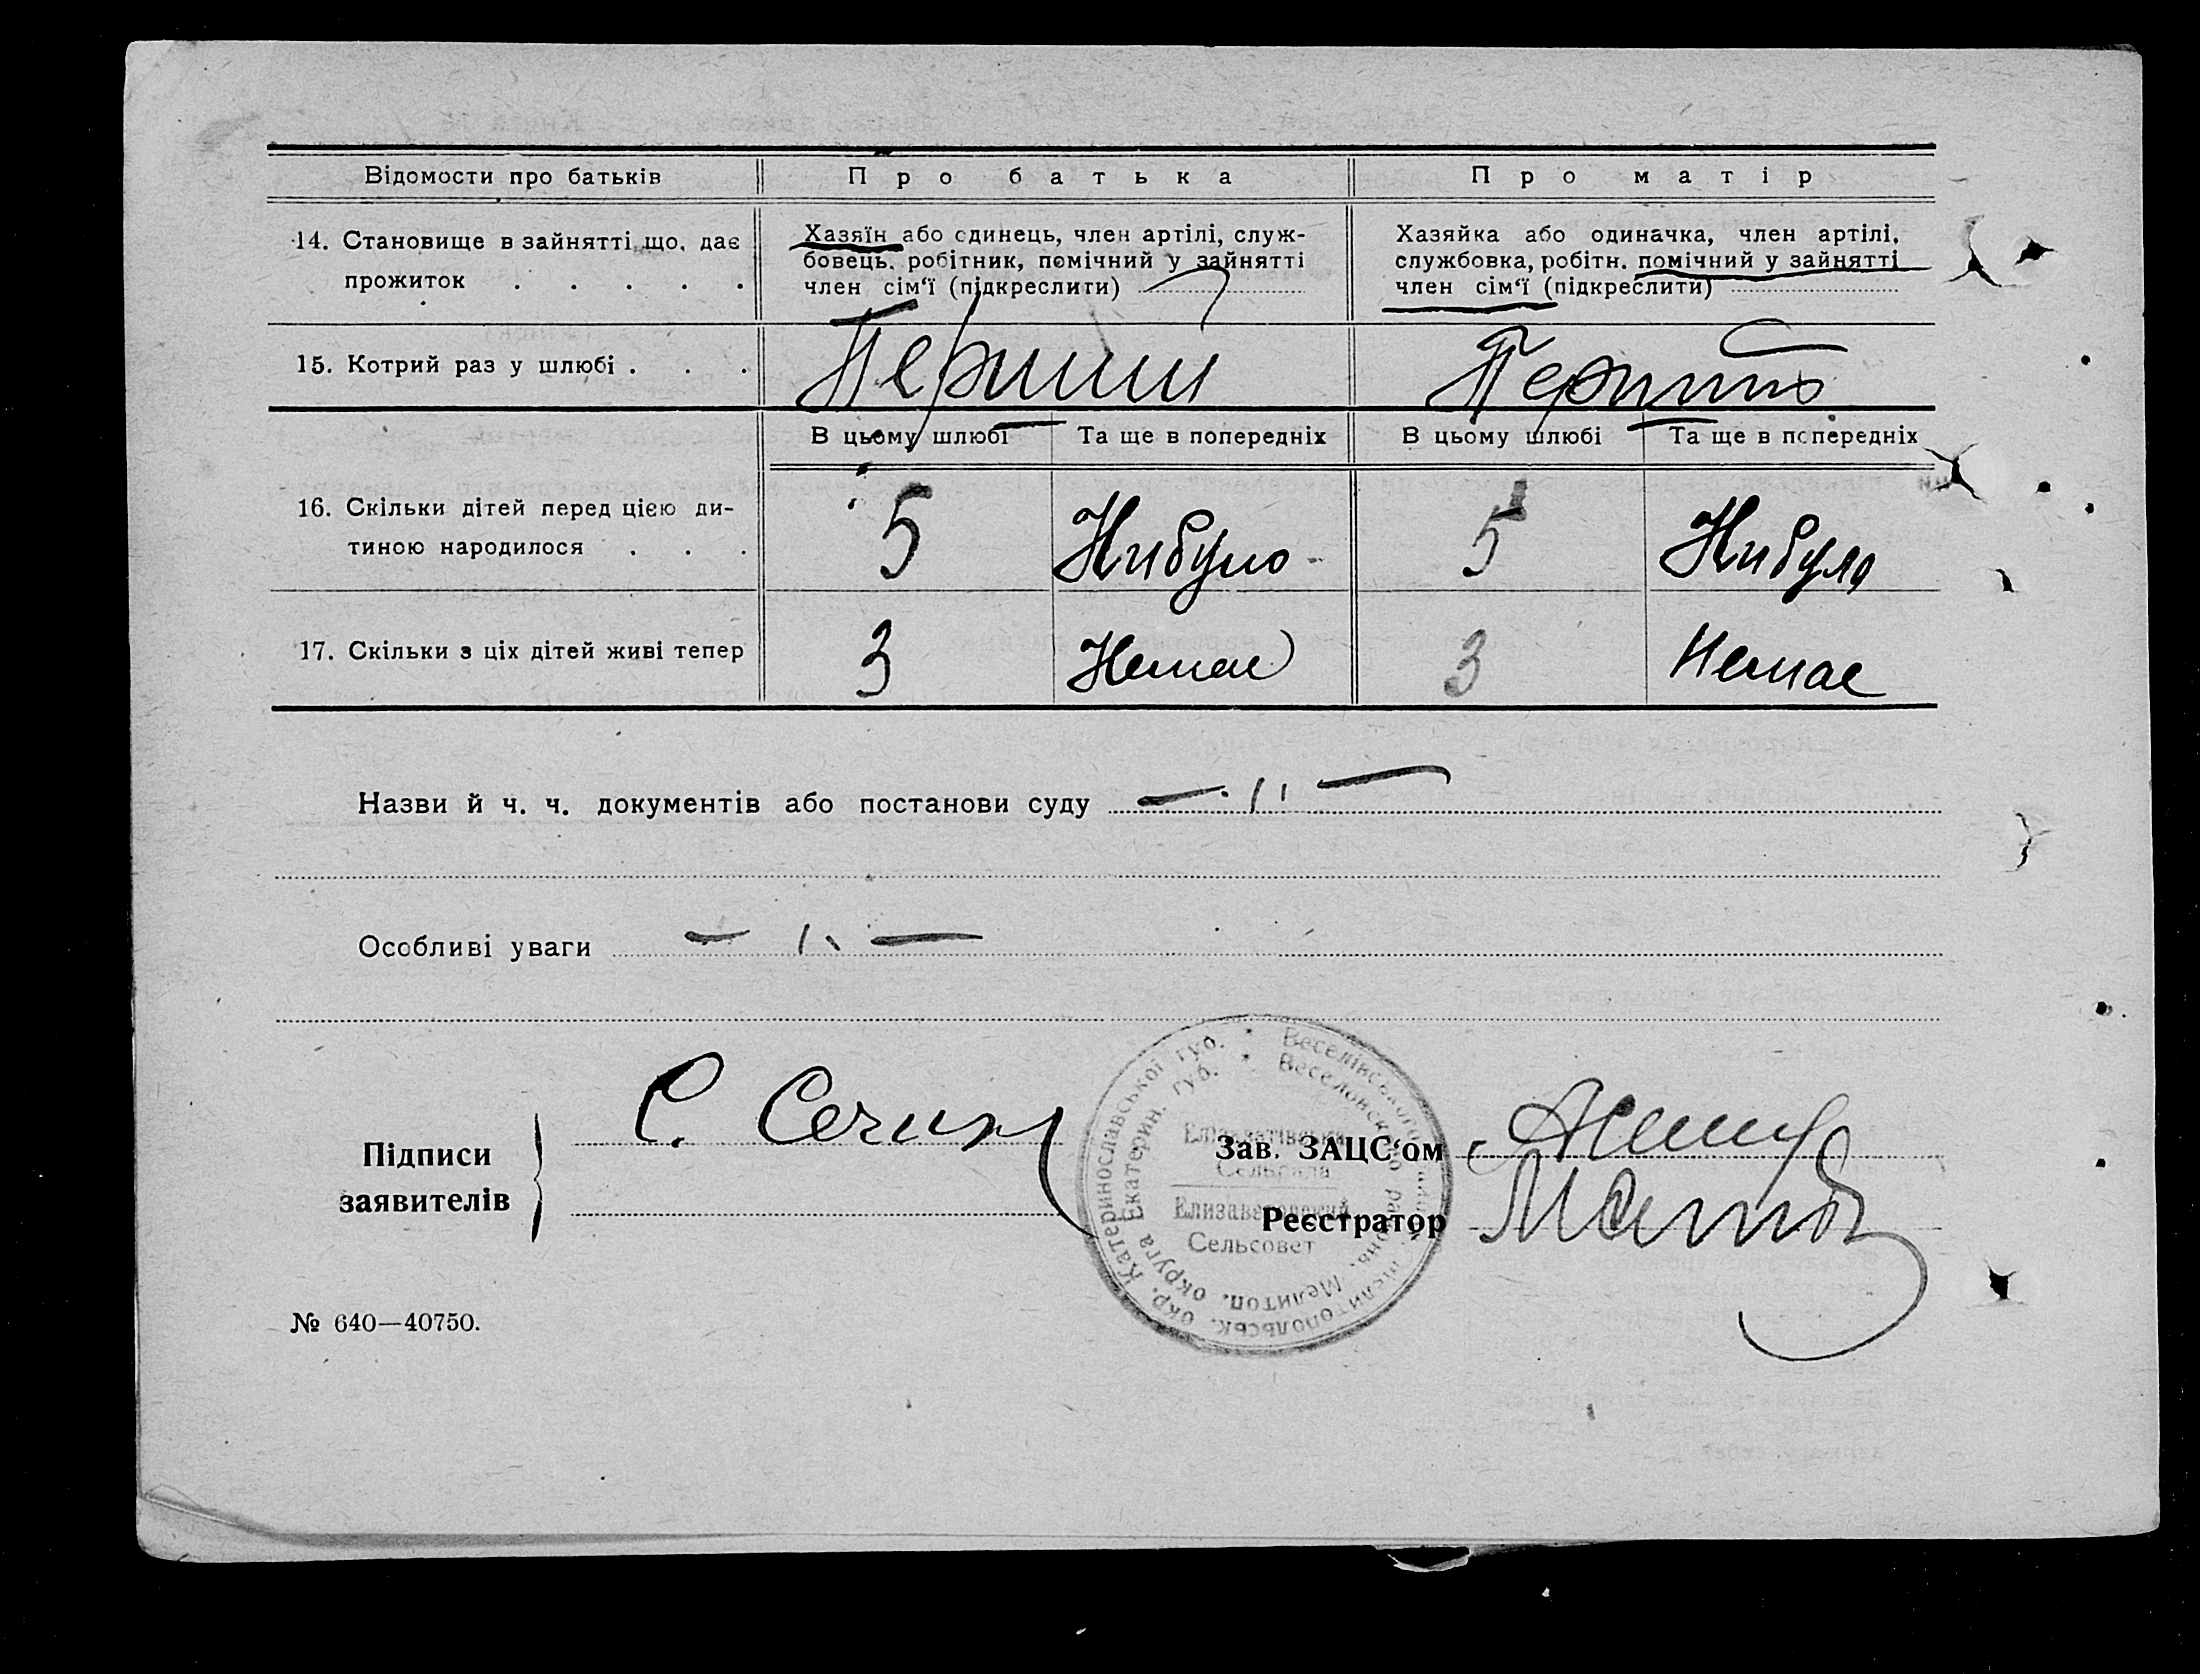 Відомости про батьків
Про батька
Про матір
14. Становище в зайнятті що, дає
прожиток . . . . .
Хазяїн або одинець, член артілі, служ-
бовець, робітник, помічний у зайнятті
член сім'ї (підкреслити)
Хазяйка або одиначка, член артілі,
службовка, робітн. помічний у зайнятті
член сім'ї (підкреслити)
15. Котрий раз у шлюбі . . .
Перший
Перший
В цьому шлюбі
Та ще в попередніх
В цьому шлюбі
Та ще в попередніх
16. Скільки дітей перед цією ди-
тиною народилося . . .
5
Нибуло
5
Нибуло
17. Скільки з ціх дітей живі тепер
3
Немае
3
Немае
Назви й ч. ч. документів або постанови суду — " —
Особливі уваги — " —
Підписи
заявителів
С. Сечин
Зав. ЗАЦС'ом
Реєстратор
Катеринославської губ. * Веселівського Мелитопольськ. окр.
Екатерин. губ. * Веселовского района, Мелитоп. округа
Елізаветівська
Сельрада
Елизаветовский
Сельсовет
№ 640—40750.